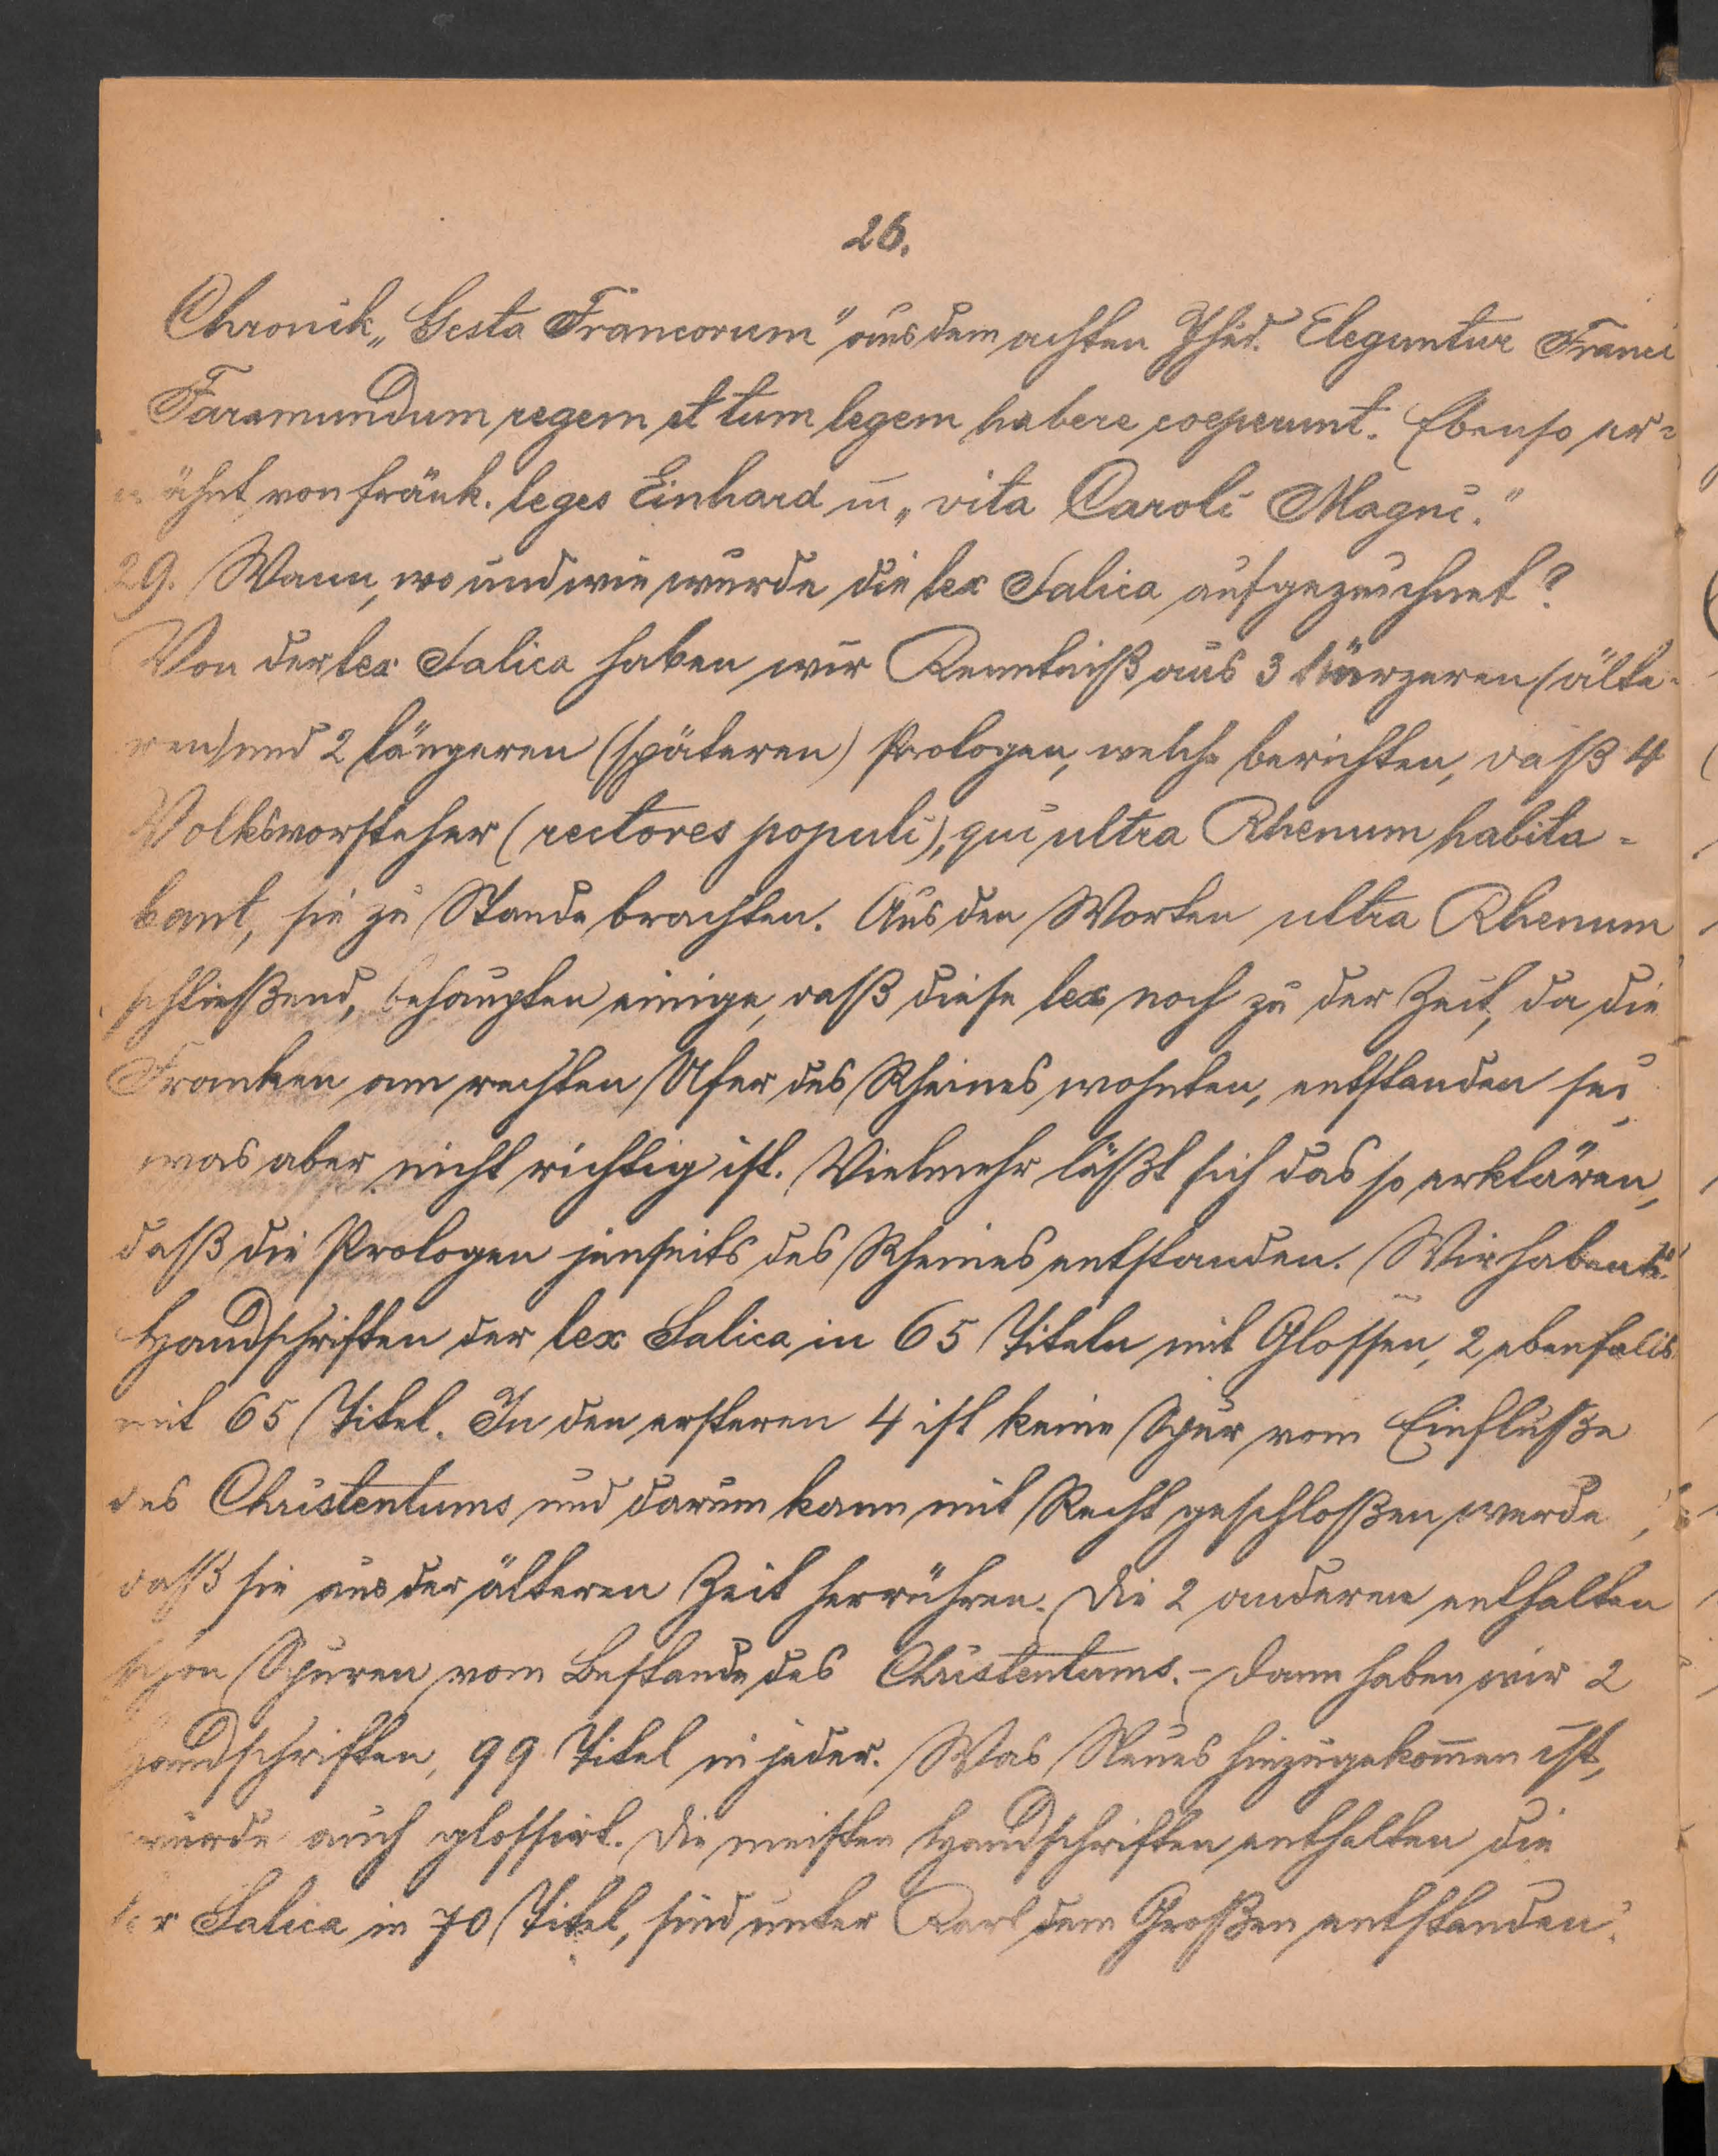 26.
Chronik „Gesta Francorum" aus dem achten Jhrd. Eleguntur Franci
Faramundum regem et tum legem habere coeperunt. Ebenso er=
wähnt von fränk. leges Einhard in „vita Caroli Magni."
29. Wann, wo und wie wurde die lex Salica aufgezeichnet?
Von der lex Salica haben wir Kenntniß aus 3 kürzeren (älte-
ren) und 2 längeren (späteren) Prologen, welche berichten, daß 4
Volksvorsteher (rectores populi), qui ultra Rhenum habita=
bant, sie zu Stande brachten. Aus den Worten ultra Rhenum
schließend, behaupten einige, daß diese lex noch zu der Zeit, da die
Franken am rechten Ufer des Rheines wohnten, entstanden sei,
was aber nicht richtig ist. Vielmehr läßt sich das so erklären,
daß die Prologen jenseits des Rheines entstanden. Wir haben
Handschriften der lex Salica in 65 Titeln mit Glossen, 2 ebenfalls
mit 65 Titel. In den ersteren 4 ist keine Spur vom Einfluße
des Christentums und darum kann mit Recht geschloßen werde,
daß sie aus der älteren Zeit herrühren. Die 2 anderen enthalten
schon Spuren vom Bestande des Christentums. – Dann haben wir 2
Handschriften, 99 Titel in jeder. Was Neues hinzugekom̄en ist,
wurde auch glossirt. Die meisten Handschriften enthalten die
lex Salica in 70 Titel, sind unter Karl dem Großen entstanden.